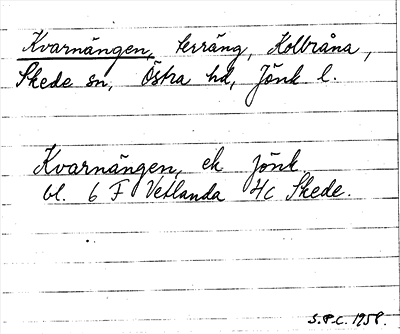 Kvarnängen, terräng, Kolbråna,
Skede sn, Östra hd, Jönk l.
Kvarnängen, ek Jönk
bl. 6 F Vetlanda 4c Skede.
S.P.C. 1958.